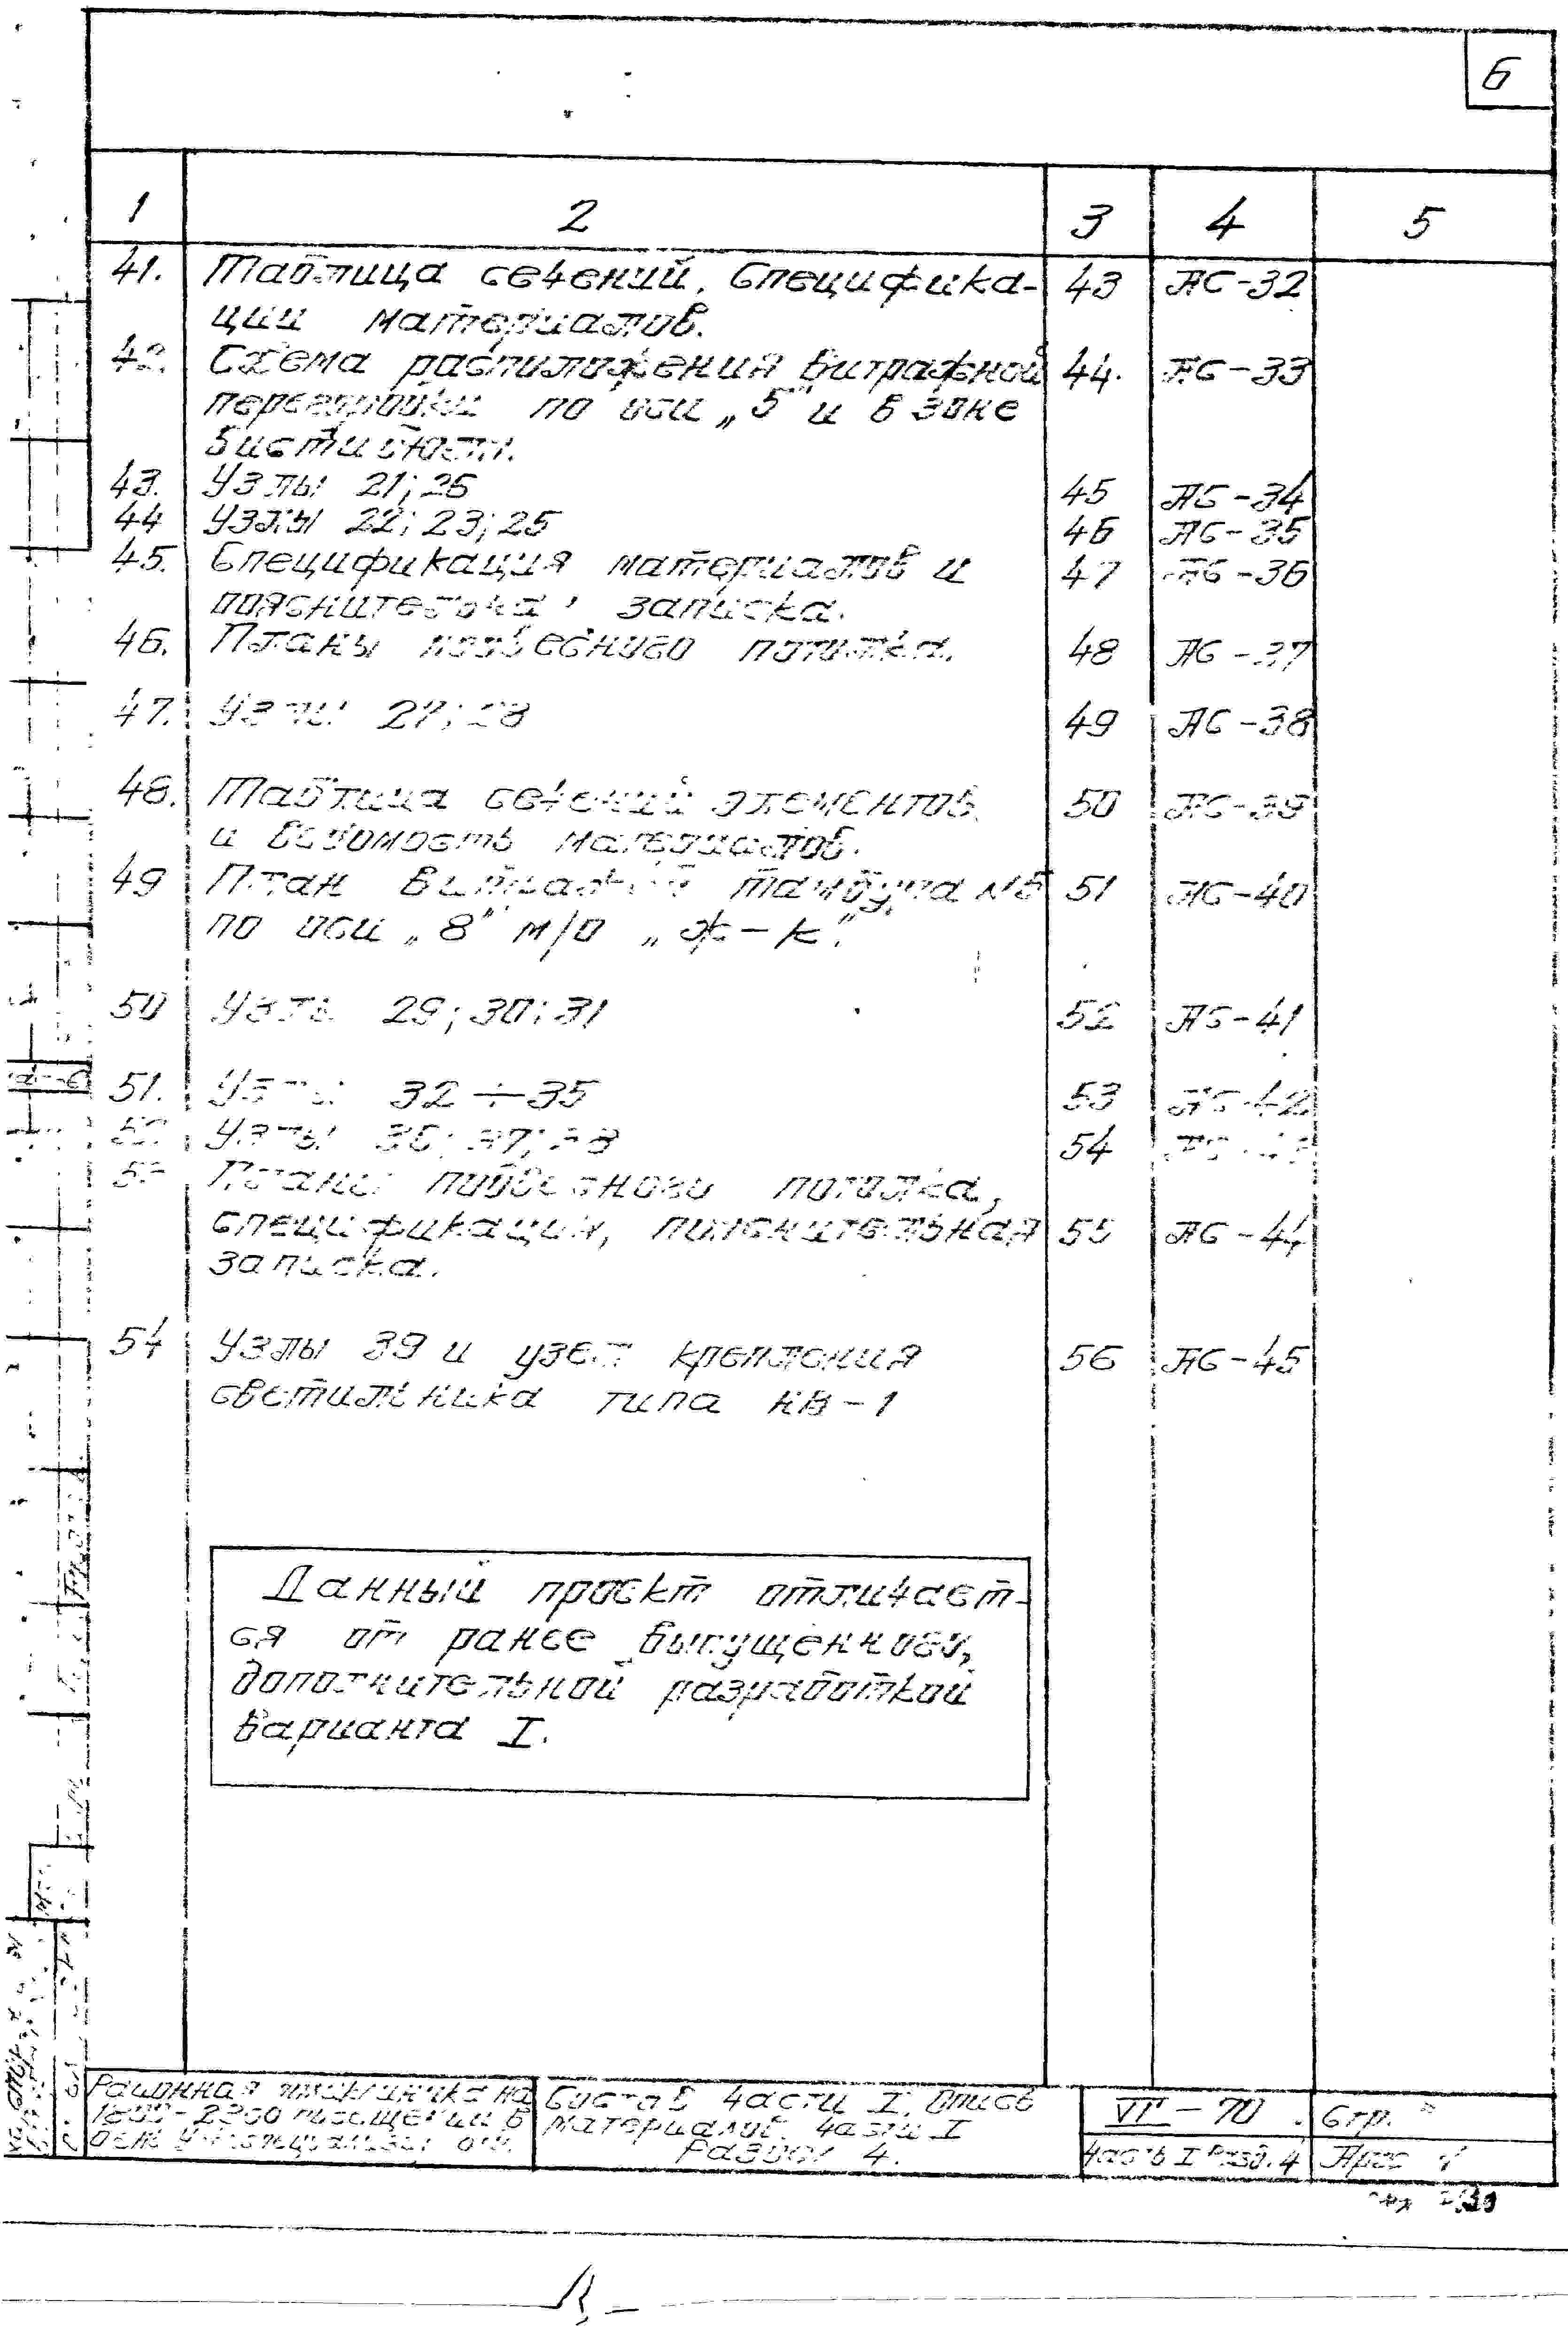 6
1 2 3 4 5
41. Таблица сечений. Специфика- 43 АС-32
ции материалов.
42. Схема расположения витражной 44. АС-33
перегородки по оси „5" и в зоне
43. Узлы 21; 26 45 АС-34
44 Узлы 22; 23; 25 46 АС-35
45. Спецификация материалов и 47 АС-36
пояснительная записка.
46. Планы подвесного потолка. 48 АС-37
47. Узлы 27; 28 49 АС-38
48. Таблица сечений элементов 50 АС-39
и ведомость материалов.
49 План витражей тамбура №5 51 АС-40
по оси „8" м/о „Ж-К".
50 Узлы 29; 30; 31 52 АС-41
51. Узлы 32÷35 53 АС-42
52. Узлы 36; 37; 38 54
53 Планы подвесного потолка,
спецификации, пояснительная 55 АС-44
записка.
54 Узлы 39 и узел крепления 56 АС-45
светильника типа НВ-1
Данный проект отличает-
ся от ранее выпущенного,
дополнительной разработкой
варианта I.
Районная поликлиника на Состав части I. Опись VI-70 Стр.
посещений в материалов. Части I
Раздел 4. Часть I Разд. 4